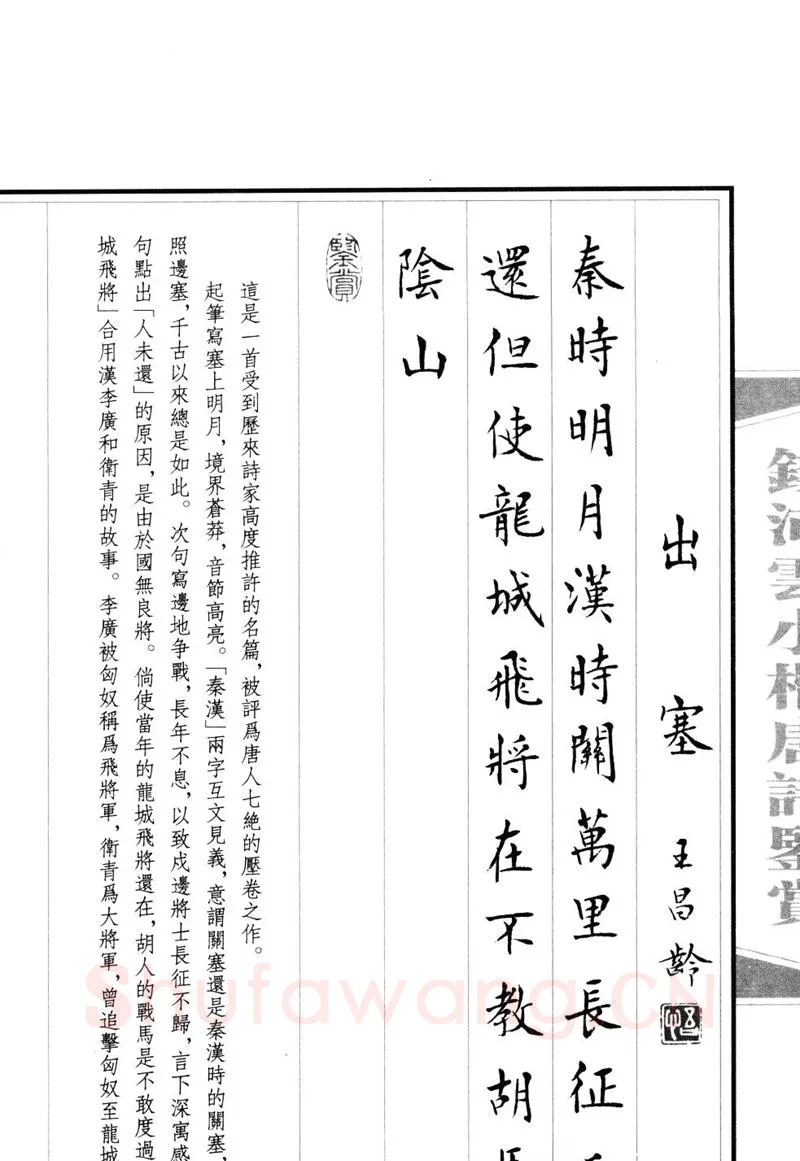 出塞
王昌齡
秦時明月漢時關萬里長征
還但使龍城飛將在不教胡
陰山
鑒賞
這是一首受到歷來詩家高度推許的名篇，被評爲唐人七絶的壓卷之作。
起筆寫塞上明月，境界蒼莽，音節高亮。「秦漢」兩字互文見義，意謂關塞還是秦漢時的關塞，
照邊塞，千古以來總是如此。次句寫邊地争戰，長年不息，以致戍邊將士長征不歸，言下深寓感
句點出「人未還」的原因，是由於國無良將。倘使當年的龍城飛將還在，胡人的戰馬是不敢度過
城飛將」合用漢李廣和衛青的故事。李廣被匈奴稱爲飛將軍，衛青爲大將軍，曾追擊匈奴至龍城
雲小楷唐詩鑒賞
Shufawang.CN